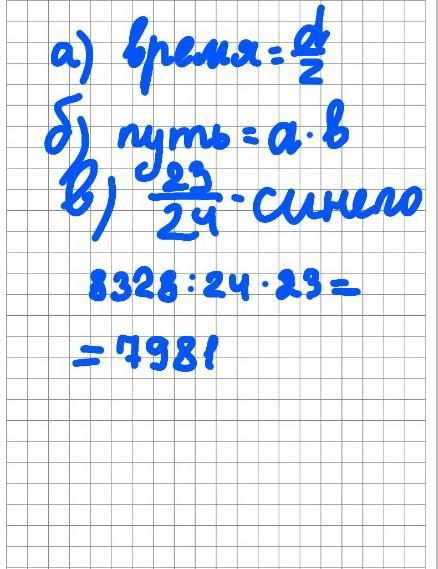 а) время = d/z
б) путь = a · b
в) 23/24 - синего
8328 : 24 · 23 =
= 7981